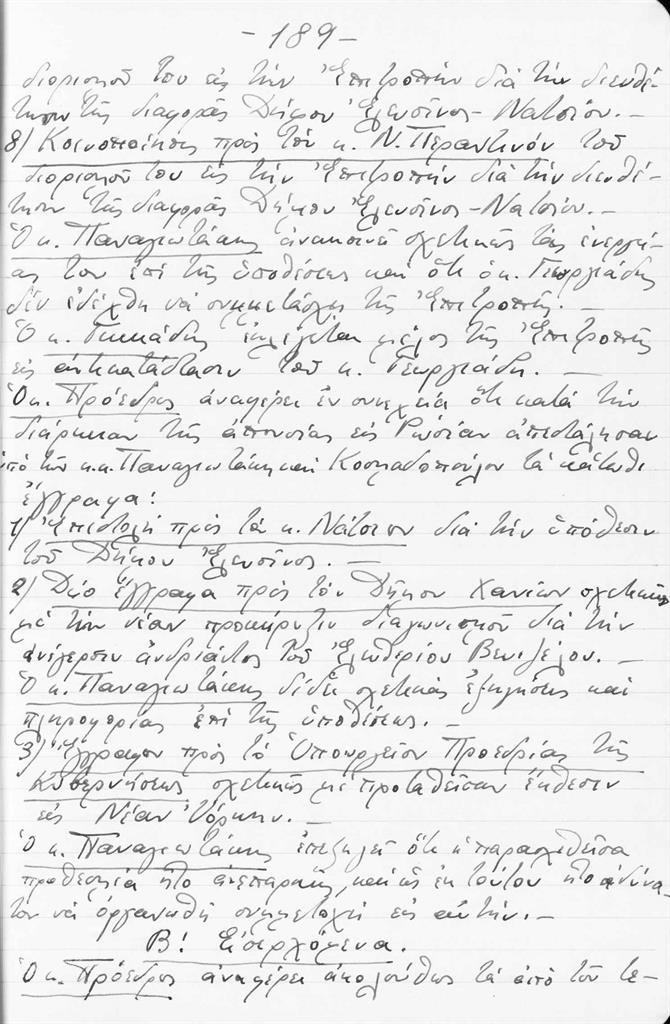 - 189 -
διορισμοῦ του εἰς τὴν Ἐπιτροπὴν διὰ τὴν διευθέ-
τησιν τῆς διαφορᾶς Δήμου Ἐλευσῖνος - Νάτσιου. —
8) Κοινοποίησις πρὸς τὸν κ. Ν. Περαντινόν τοῦ
διορισμοῦ του εἰς τὴν Ἐπιτροπὴν διὰ τὴν διευθέ-
τησιν τῆς διαφορᾶς Δήμου Ἐλευσῖνος - Νάτσιου. —
Ὁ κ. Παναγιωτάκης ἀνακοινεῖ σχετικῶς τὰς ἐνεργεί-
ας του ἐπὶ τῆς ὑποθέσεως καὶ ὅτι ὁ κ. Γεωργιάδης
δὲν ἐδέχθη νὰ συμμετάσχῃ τῆς Ἐπιτροπῆς. —
Ὁ κ. Γιμμάδης ἐκλέγεται μέλος τῆς Ἐπιτροπῆς
εἰς ἀντικατάστασιν τοῦ κ. Γεωργιάδη. —
Ὁ κ. Πρόεδρος ἀναφέρει ἐν συνεχείᾳ ὅτι κατὰ τὴν
διάρκειαν τῆς ἀπουσίας εἰς Ρωσίαν ἀπεστάλησαν
ὑπὸ τῶν κ.κ. Παναγιωτάκη καὶ Κοσμαδοπούλου τὰ κάτωθι
ἔγγραφα:
1) Ἐπιστολὴ πρὸς τὸν κ. Νάτσιον διὰ τὴν ὑπόθεσιν
τοῦ Δήμου Ἐλευσῖνος. —
2) Δύο ἔγγραφα πρὸς τὸν Δῆμον Χανίων σχετικῶς
μὲ τὴν νέαν προκήρυξιν διαγωνισμοῦ διὰ τὴν
ἀνέγερσιν ἀνδριάντος τοῦ Ἐλευθερίου Βενιζέλου. —
Ὁ κ. Παναγιωτάκης δίδει σχετικὰς ἐξηγήσεις καὶ
πληροφορίας ἐπὶ τῆς ὑποθέσεως. —
3) Ἔγγραφον πρὸς τὸ Ὑπουργεῖον Προεδρίας τῆς
Κυβερνήσεως σχετικῶς μὲ προταθεῖσαν ἔκθεσιν
εἰς Νέαν Ὑόρκην. —
Ὁ κ. Παναγιωτάκης ἐπεξηγεῖ ὅτι ἡ παρασχεθεῖσα
προθεσμία ἦτο ἀνεπαρκής, καὶ ὡς ἐκ τούτου ἦτο ἀδύνα-
τον νὰ ὀργανωθῇ συμμετοχὴ εἰς αὐτήν. —
Β! Εἰσερχόμενα.
Ὁ κ. Πρόεδρος ἀναφέρει ἀκολούθως τὰ ἀπὸ τοῦ τε-